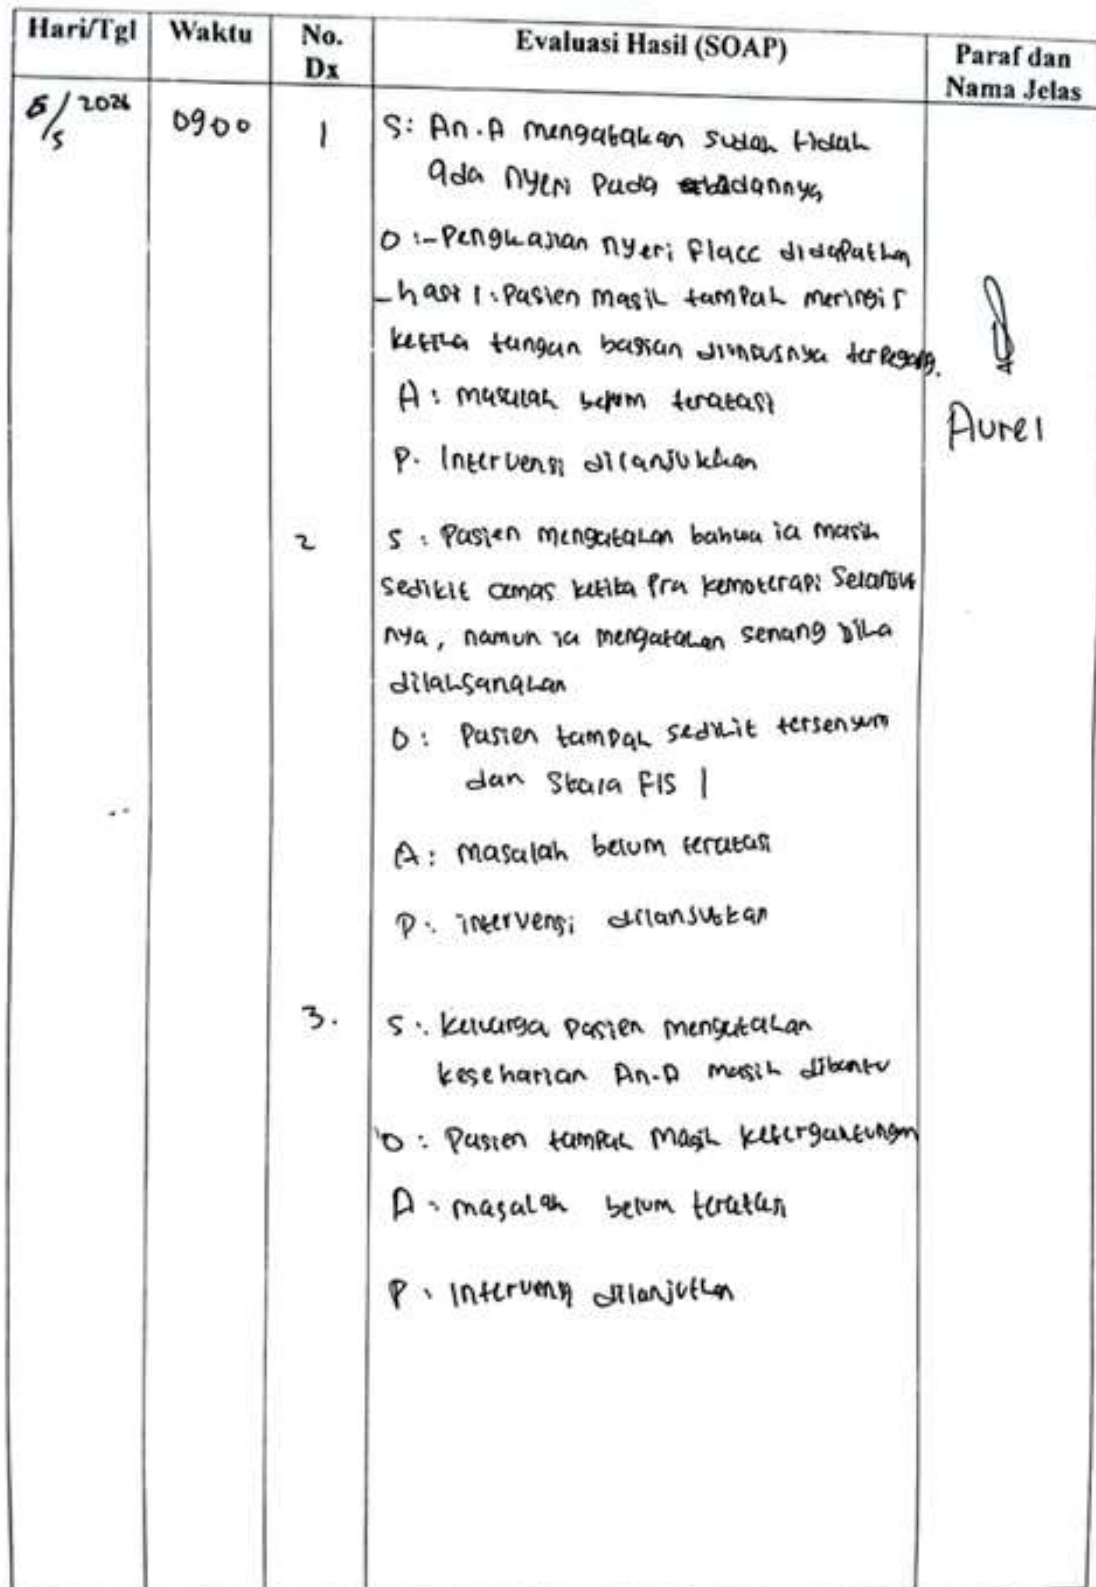 Hari/Tgl
Waktu
No.
Dx
Evaluasi Hasil (SOAP)
Paraf dan
Nama Jelas
5/5 2026
0900
1
S: An.A mengatakan sudah tidak
ada nyeri pada badannya
O :- Pengkajian nyeri Flacc didapatkan
- hasil 1 : Pasien masih tampak meringis
ketika tangan bagian diinfusnya terpegang.
A : masalah belum teratasi
P. Intervensi dilanjutkkan
Aurel
2
S : Pasien mengatakan bahwa ia masih
sedikit cemas ketika Pra kemoterapi Selanjut
nya, namun ia mengatakan senang bila
dilaksanakan
O : Pasien tampak sedikit tersenyum
dan Skala FIS 1
A : masalah belum teratasi
P : intervensi dilanjutkan
3.
S : keluarga pasien mengatakan
keseharian An.A masih dibantu
O : Pasien tampak masih ketergantungan
A : masalah belum teratasi
P : Intervensi dilanjutkan